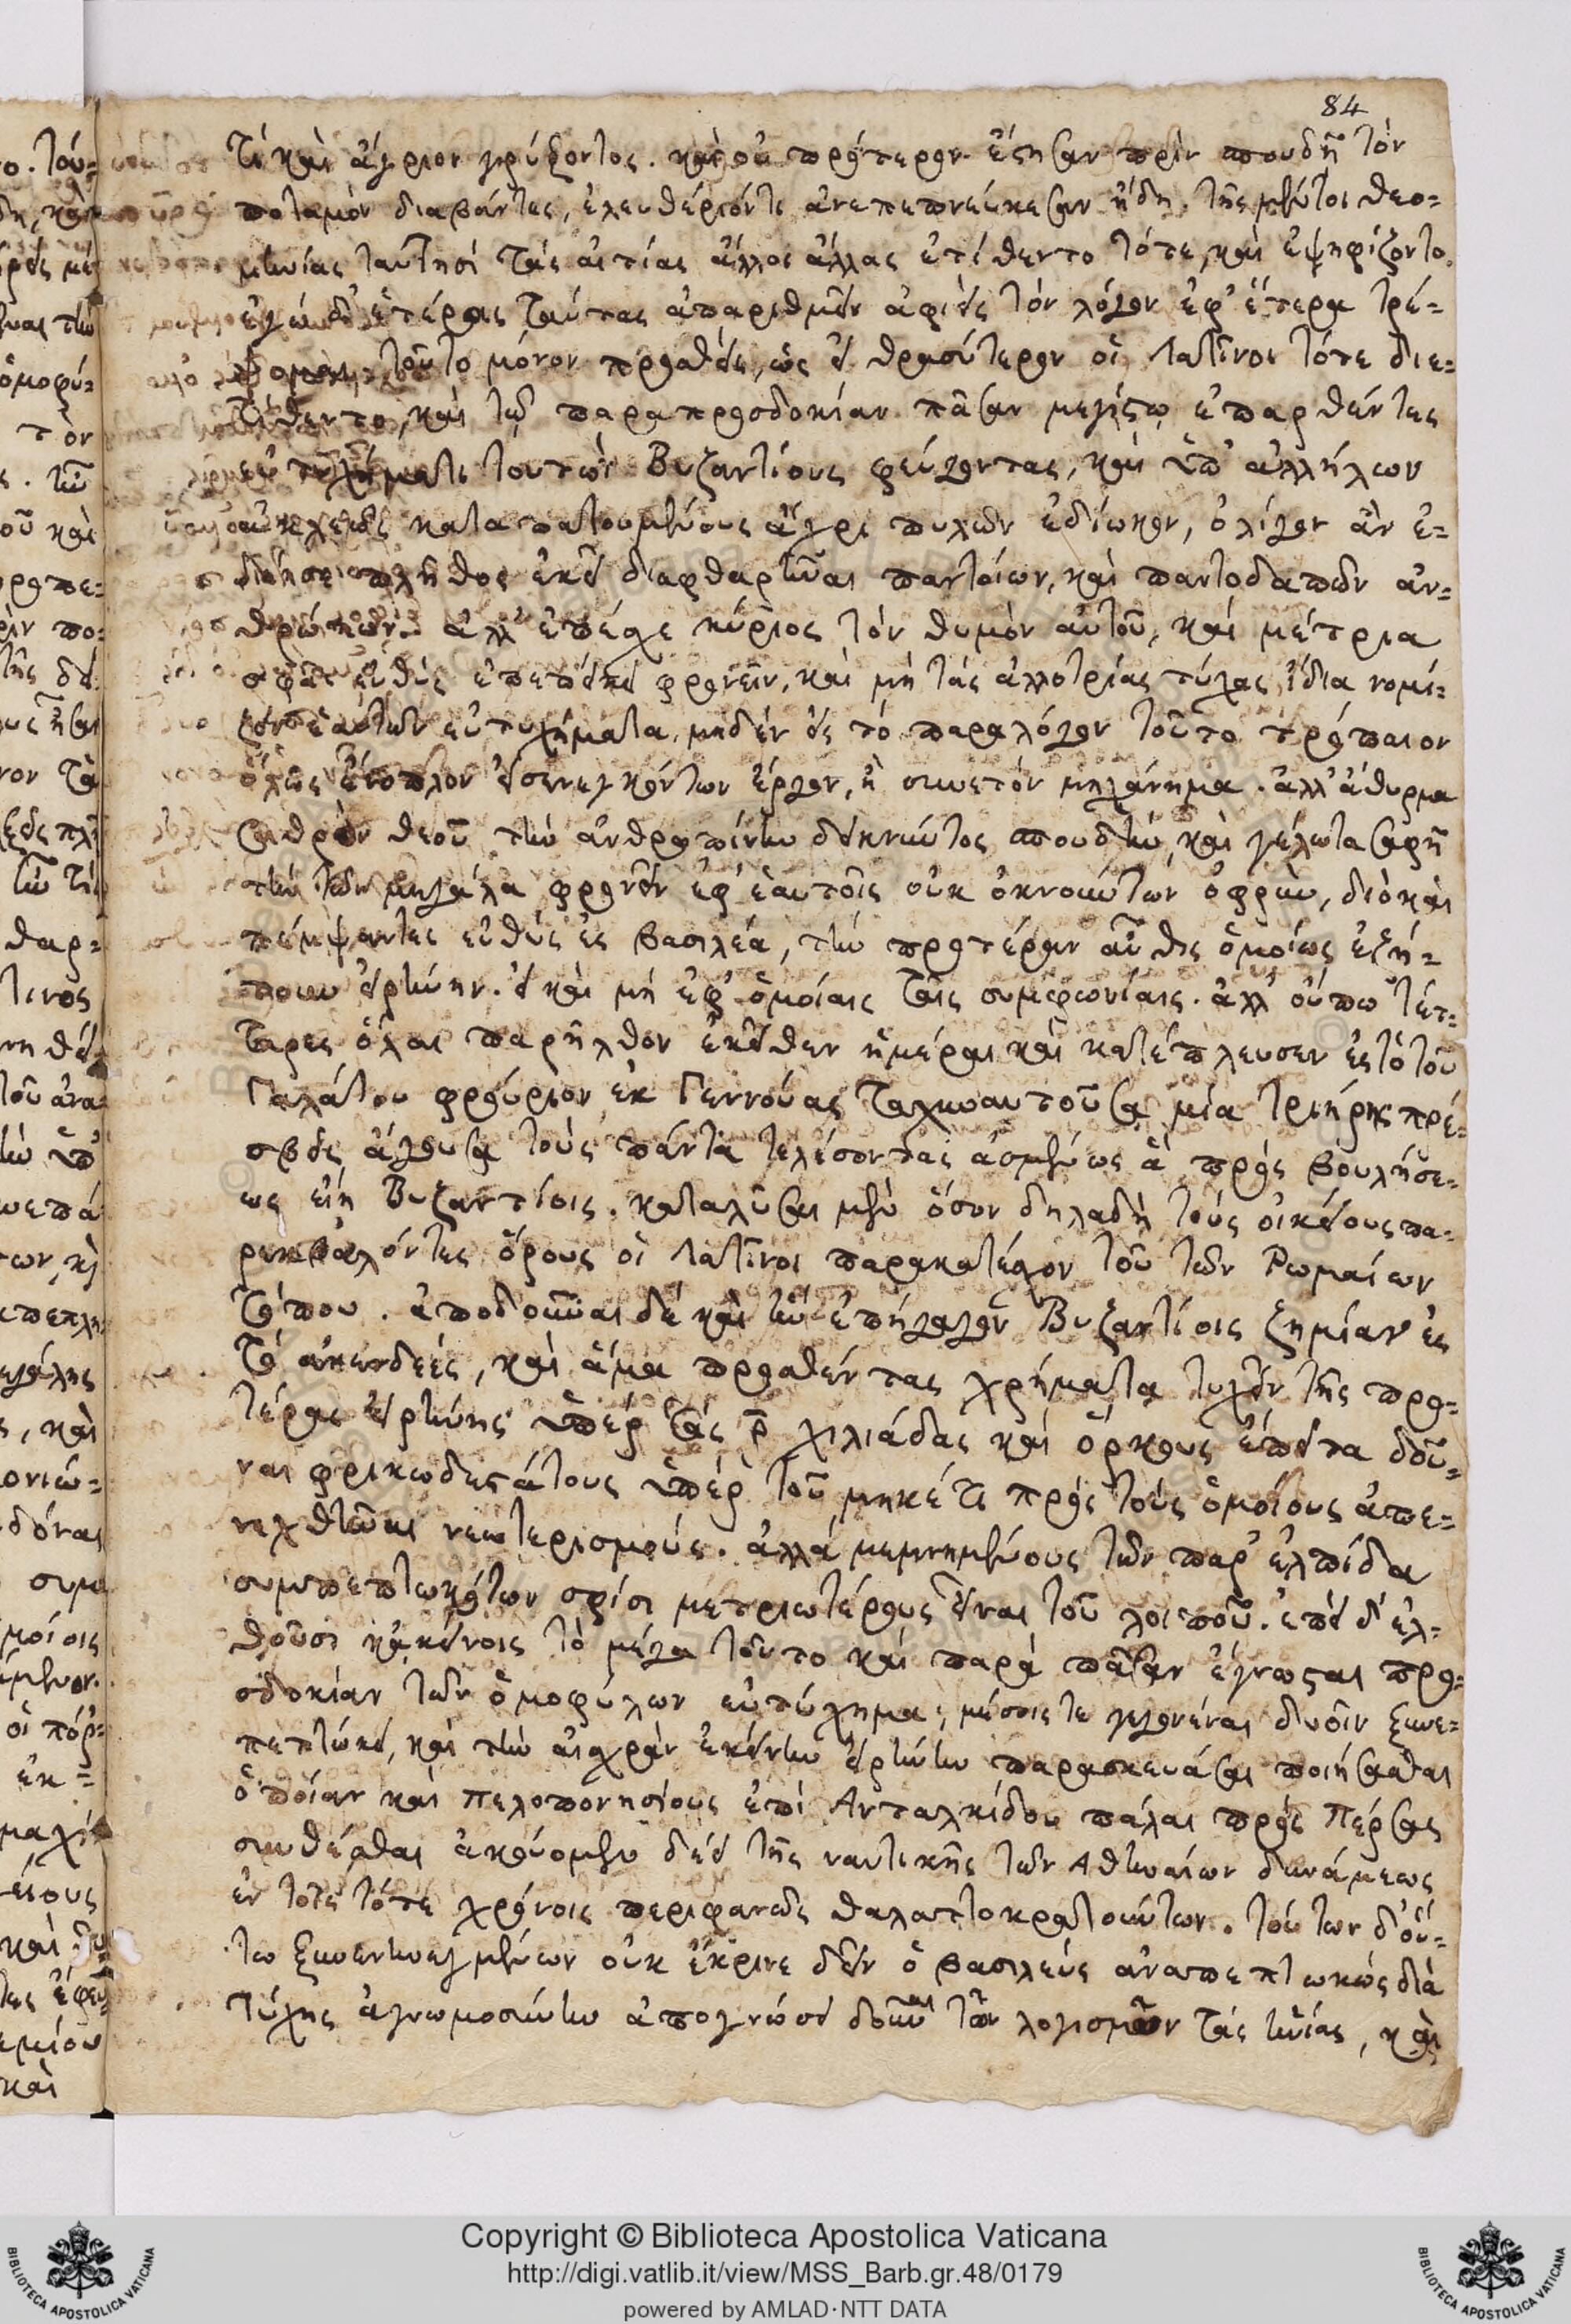 84
τί καὶ ἄγριον γρύζοντος. καὶ οὐ πρότερον ἔστησαν πρὶν σπουδῇ τὸν
ποταμὸν διαβάντες, ἐλευθέριόν τι ἀνεπεπνεύκεσαν ἤδη. τῆς μέντοι θεο-
μηνίας ταυτησὶ τὰς αἰτίας ἄλλοι ἄλλας ἐτίθεντο τότε, καὶ ἐψηφίζοντο.
ἐγὼ δ' ἑτέροις ταύτας ἀπαριθμεῖν ἀφεὶς τὸν λόγον ἐφ' ἕτερα τρέ-
ψομαι, τοῦτο μόνον προσθείς, ὡς εἰ θρασύτερον οἱ Λατῖνοι τότε διε-
τίθεντο, καὶ τῷ παρὰ προσδοκίαν πᾶσαν μεγίστῳ ἐπαρθέντες
εὐτυχήματι τουτωῒ Βυζαντίους φεύγοντας, καὶ ὑπ' ἀλλήλων
ἀκλεῶς καταπατουμένους ἄχρι πυλῶν ἐδίωκον, ὀλίγον ἂν ἐ-
δέησε πλῆθος ἐκεῖ διαφθαρῆναι παντοίων, καὶ παντοδαπῶν ἀν-
θρώπων. ἀλλ' ἐπέσχε κύριος τὸν θυμὸν αὐτοῦ, καὶ μέτρια
σφᾶς εὐθὺς ἐπεπείκει φρονεῖν, καὶ μὴ τὰς ἀλλοτρίας τύχας ἴδια νομί-
ζειν ἑαυτῶν εὐτυχήματα, μηδὲν εἰς τὸ παραλόγον τοῦτο τρόπαιον
ὅλως ἔνοπλον εἰσενεγκόντων ἔργον, ἢ συνετὸν μηχάνημα. ἀλλ' ἄθυρμα
σαθρὸν θεοῦ τὴν ἀνθρωπίνην δεικνύντος σπουδὴν, καὶ γέλωτα σαφῆ
τὴν τῶν μεγάλα φρονεῖν ἐφ' ἑαυτοῖς οὐκ ὀκνούντων ὀφρὺν, διὸ καὶ
πέμψαντες εὐθὺς ἐς βασιλέα, τὴν προτέραν αὖθις ὁμοίως ἐζή-
τουν εἰρήνην. εἰ καὶ μὴ ἐφ' ὁμοίαις ταῖς συμφωνίαις. ἀλλ' οὔπω τέτ-
ταρες ὅλαι παρῆλθον ἐκεῖθεν ἡμέραι καὶ κατέπλευσεν ἐς τὸ τοῦ
Γαλάτου φρούριον ἐκ Γεννούας ταχυναυτοῦσα μία τριήρης πρέ-
σβεις ἄγουσα τοὺς πάντα τελέσοντας ἀσμένως ἃ πρὸς βουλήσε-
ως εἴη Βυζαντίοις. καταλῦσαι μὲν ὅσον δηλαδὴ τοὺς οἰκείους πα-
ρεκβαλόντες ὅρους οἱ Λατῖνοι παρακατέσχον τοῦ τῶν Ρωμαίων
τόπου. ἀποδοῦναι δὲ καὶ ἣν ἐπήγαγον Βυζαντίοις ζημίαν ἐς
τὸ ἀνενδεές, καὶ ἅμα προσθέντας χρήματα τυχεῖν τῆς προ-
τέρας εἰρήνης ὑπὲρ τὰς ρ̅ χιλιάδας καὶ ὅρκους ἔπειτα δοῦ-
ναι φρικωδεστάτους ὑπὲρ τοῦ μηκέτι πρὸς τοὺς ὁμοίους ἀπε-
νεχθῆναι νεωτερισμούς. ἀλλὰ μεμνημένους τῶν παρ' ἐλπίδα
συμπεπτωκότων σφίσι μετριωτέρους εἶναι τοῦ λοιποῦ. ἐπεὶ δ' ἐλ-
θοῦσι κἀκείνοις τὸ μέγα τοῦτο καὶ παρὰ πᾶσαν ἔγνωσται προσ-
δοκίαν τῶν ὁμοφύλων εὐτύχημα, μέσοις τε γεγονέναι δυοῖν ξυνε-
πεπτώκει, καὶ τὴν αἰσχρὰν ἐκείνην εἰρήνην παρασκευάσαι ποιήσασθαι
ὁποίαν καὶ πελοπονησίους ἐπὶ Ἀνταλκίδου πάλαι πρὸς Πέρσας
συνθέσθαι ἀκούομεν δέει τῆς ναυτικῆς τῶν Ἀθηναίων δυνάμεως
ἐν τοῖς τότε χρόνοις περιφανῶς θαλαττοκρατούντων. τούτων δ' οὕ-
τω ξυνενηνεγμένων οὐκ ἔκρινε δεῖν ὁ βασιλεὺς ἀναπεπτωκὼς διὰ
τύχης ἀγνωμοσύνην ἀπογνώσει δοῦναι τῶν λογισμῶν τὰς ἡνίας, καὶ
Copyright © Biblioteca Apostolica Vaticana
http://digi.vatlib.it/view/MSS_Barb.gr.48/0179
powered by AMLAD·NTT DATA
BIBLIOTECA APOSTOLICA VATICANA
BIBLIOTECA APOSTOLICA VATICANA